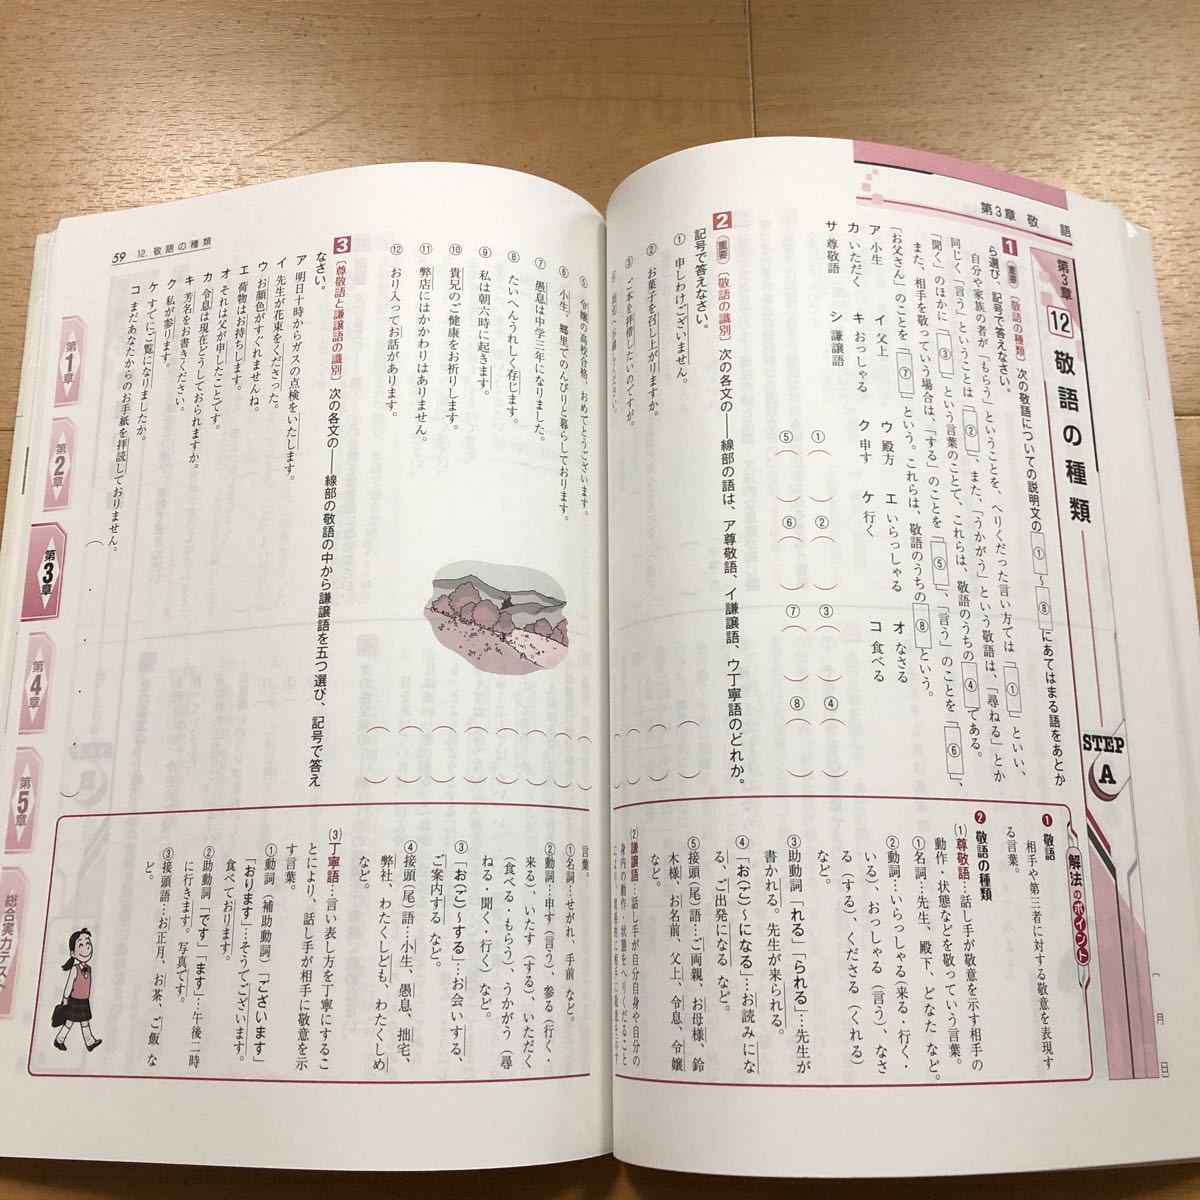 第3章 敬語
第3章
12
敬語の種類
STEP
A
月
日
1 重要 〔敬語の種類〕 次の敬語についての説明文の①～⑧にあてはまる語をあとか
ら選び、記号で答えなさい。
自分や家族の者が「もらう」ということを、へりくだった言い方では①といい、
同じく「言う」ということは②、また、「うかがう」という敬語は、「尋ねる」とか
「聞く」のほかに③という言葉のことで、これらは、敬語のうちの④である。
また、相手を敬っていう場合は、「する」のことを⑤、「言う」のことを⑥、
「お父さん」のことを⑦という。これらは、敬語のうちの⑧という。
ア 小生 イ 父上 ウ 殿方 エ いらっしゃる オ なさる
カ いただく キ おっしゃる ク 申す ケ 行く コ 食べる
サ 尊敬語 シ 謙譲語
①( ) ②( ) ③( ) ④( )
⑤( ) ⑥( ) ⑦( ) ⑧( )
2 重要 〔敬語の識別〕 次の各文の――線部の語は、ア尊敬語、イ謙譲語、ウ丁寧語のどれか。
記号で答えなさい。
① 申しわけございません。 ( )
② お菓子を召し上がりますか。 ( )
③ ご本を拝借したいのですが。 ( )
⑤ 令嬢の高校合格、おめでとうございます。 ( )
⑥ 小生、郷里でのんびりと暮らしております。 ( )
⑦ 愚息は中学三年になりました。 ( )
⑧ たいへんうれしく存じます。 ( )
⑨ 私は朝六時に起きます。 ( )
⑩ 貴兄のご健康をお祈りします。 ( )
⑪ 弊店にはかかわりはありません。 ( )
⑫ お入りってお話があります。 ( )
3 〔尊敬語と謙譲語の識別〕 次の各文の――線部の敬語の中から謙譲語を五つ選び、記号で答え
なさい。
ア 明日十時からガスの点検をいたします。
イ 先生が花束をくださった。
ウ お顔色がすぐれませんね。
エ 荷物はお持ちします。
オ それは父が申したことです。
カ 令息は現在どうしておられますか。
キ 芳名をお書きください。
ク 私が参ります。
ケ すでにご覧になりましたか。
コ まだあなたからのお手紙を拝読しておりません。
( )
59 12. 敬語の種類
解法のポイント
❶ 敬語
相手や第三者に対する敬意を表現す
る言葉。
❷ 敬語の種類
(1)尊敬語…話し手が敬意を示す相手の
動作・状態などを敬っていう言葉。
①名詞…先生、殿下、どなた など。
②動詞…いらっしゃる(来る・行く・
いる)、おっしゃる(言う)、なさ
る(する)、くださる(くれる)
など。
③助動詞「れる」「られる」…先生が
書かれる。先生が来られる。
④「お(ご)～になる」…お読みにな
る、ご出発になる など。
⑤接頭(尾)語…ご両親、お母様、鈴
木様、お名前、父上、令息、令嬢
(2)謙譲語…話し手が自分自身や自分の
身内の動作・状態をへりくだること
言葉。
①名詞…せがれ、手前 など。
②動詞…申す(言う)、参る(行く・
来る)、いたす(する)、いただく
(食べる・もらう)、うかがう(尋
ねる・聞く・行く) など。
③「お(ご)～する」…お会いする、
ご案内する など。
④接頭(尾)語…小生、愚息、拙宅、
弊社、わたくしども、わたくしめ
など。
(3)丁寧語…言い表し方を丁寧にするこ
とにより、話し手が相手に敬意を示
す言葉。
①動詞(補助動詞)「ございます」
「おります」…そうでございます。
食べております。
②助動詞「です」「ます」…午後二時
に行きます。写真です。
③接頭語…お正月、お茶、ご飯 な
ど。
第1章
第2章
第3章
第4章
第5章
総合実力テスト